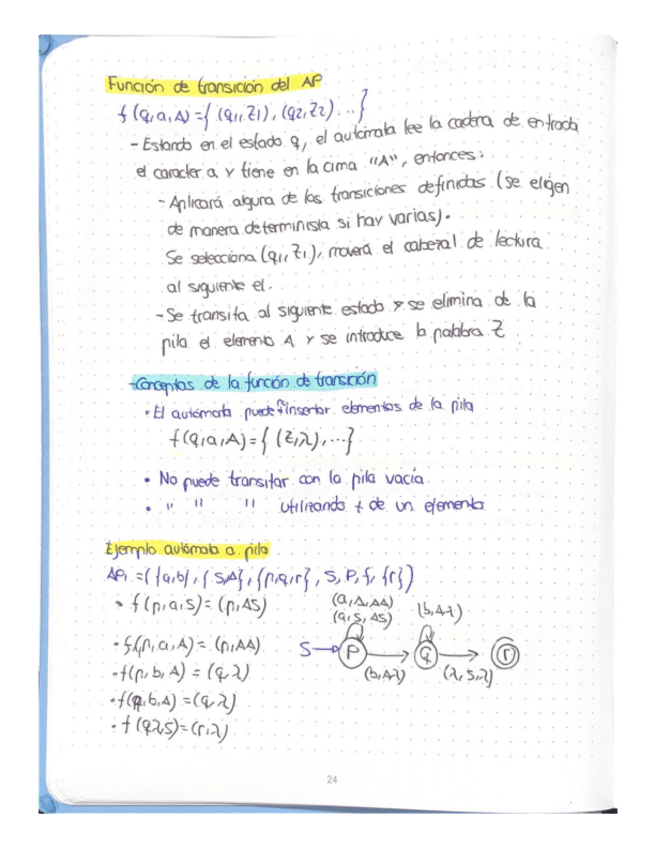 Función de transición del AP
f(q,a,A)={(q1,Z1),(q2,Z2)...}
- Estando en el estado q, el autómata lee la cadena de entrada
el caracter a y tiene en la cima "A", entonces:
- Aplicará alguna de las transiciones definidas (se eligen
de manera determinista si hay varias).
Se selecciona (q1,Z1), moverá el cabezal de lectura
al siguiente el.
- Se transita al siguiente estado y se elimina de la
pila el elemento A y se introduce la palabra Z
- Conceptos de la función de transición
• El autómata puede insertar elementos de la pila
f(q,a,A)={(z,λ),...}
• No puede transitar con la pila vacía
• " " " utilizando + de un elemento
Ejemplo autómata a pila
AP1 =({a,b},{S,A},{p,q,r},S,P,f,{r})
• f(p,a,S)=(p,AS)
• f(p,a,A)=(p,AA)
• f(p,b,A)=(q,λ)
• f(q,b,A)=(q,λ)
• f(q,λ,S)=(r,λ)
(a,A,AA)
(a,S,AS)
(b,A,λ)
S P q r
(b,A,λ) (λ,S,λ)
24